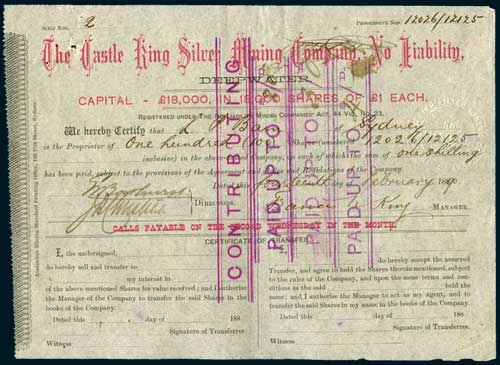 SCRIP NOS. 2
PROGRESSIVE NOS. 12026/12125
The Castle King Silver Mining Company, No Liability,
DEEPWATER
CAPITAL - £18,000, IN 18,000 SHARES OF £1 EACH.
REGISTERED UNDER THE NO LIABILITY MINING COMPANIES' ACT, 44 Vic. No. 23.
We hereby Certify that of Sydney
is the Proprietor of One hundred (100) Shares (numbered 12026/12125
inclusive) in the above-named Company, on each of which the sum of one shilling
has been paid, subject to the provisions of the Agreement and Rules and Regulations of the Company.
Dated this fourteenth day of February 1890.
DIRECTORS.
Francis W King MANAGER.
CALLS PAYABLE ON THE SECOND WEDNESDAY IN THE MONTH.
CERTIFICATE OF TRANSFER.
I, the undersigned,
do hereby sell and transfer to
my interest in
of the above mentioned Shares for value received; and I authorise
the Manager of the Company to transfer the said Shares in the
books of the Company.
Dated this day of 188
Signature of Transferror.
Witness
do hereby accept the assured
Transfer, and agree to hold the Shares therein mentioned, subject
to the rules of the Company, and upon the same terms and con-
ditions as the said held the
same; and I authorise the Manager to act as my agent, and to
transfer the said Shares in my name in the books of the Company.
Dated this day of 188
Signature of Transferree.
Witness
CONTRIBUTING
PAID UP TO
PAID UP TO
PAID UP TO
Australian Mining Standard Printing Office, Sydney.